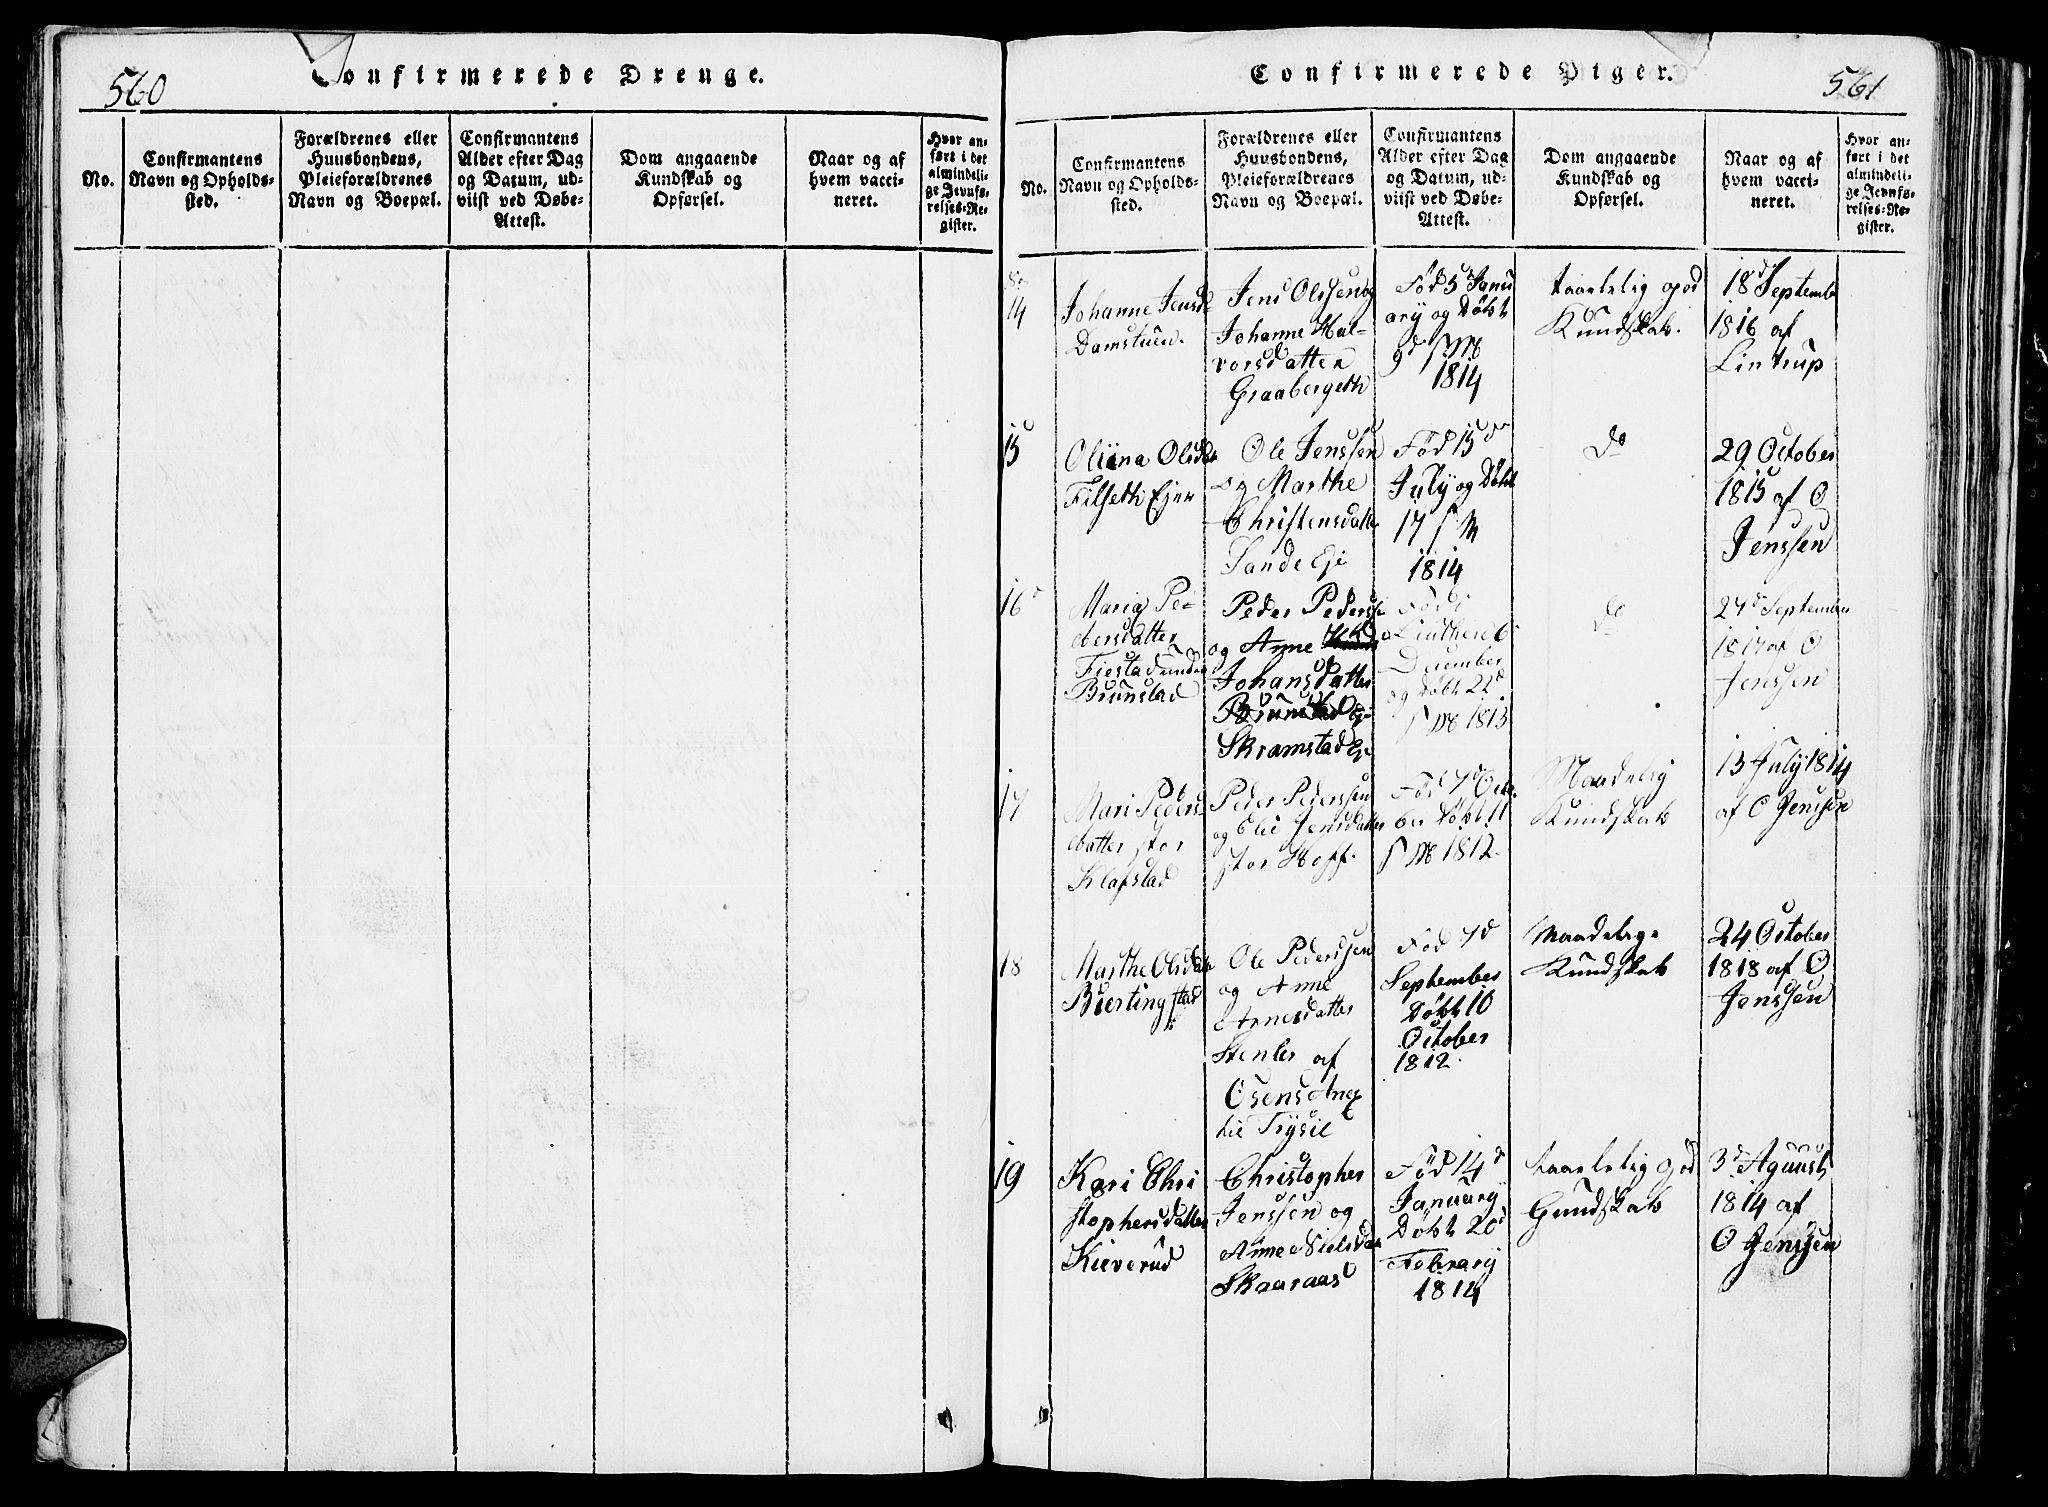 560
Confirmerede Drenge.
No.
Confirmantens
Navn og Opholds-
sted.
Forældrenes eller
Huusbondens,
Pleieforældrenes
Navn og Boepæl.
Confirmantens
Alder efter Dag
og Datum, ud-
viist ved Døbe-
Attest.
Dom angaaende
Kundskab og
Opførsel.
Naar og af
hvem vacci-
neret.
Hvor an-
ført i det
almindeli-
ge Jevnfø-
relses-Re-
gister.
Confirmerede Piger.
561
No.
Confirmantens
Navn og Opholds-
sted.
Forældrenes eller
Huusbondens,
Pleieforældrenes
Navn og Boepæl.
Confirmantens
Alder efter Dag
og Datum, ud-
viist ved Døbe-
Attest.
Dom angaaende
Kundskab og
Opførsel.
Naar og af
hvem vacci-
neret.
Hvor an-
ført i det
almindeli-
ge Jevnfø-
relses-Re-
gister.
14
Johanne Jensd
Damstuen.
Jens Olssen og
Johanne Hal-
vorsdatter
Graabergeth
Fød 5 Janu
ary og Døbt
9d s M
1814
taalelig god
Kundskab.
18d Septembe
1816 af
Lintrup
15
Oliina Olsdat
Filseth Ejer
Ole Jenssen
og Marthe
Christensdatte
Sande Eje
Fød 15d
July og Døbt
17 s M
1814
do
29 October
1815 af O
Jenssen
16
Maria Pe-
dersdatter
Fiestad under
Brunstad
Peder Peders
og Anne
Johansdatter
Brunstad Ej
Skramstad Ej
Fød i
6
December
og Døbt 22d
s M 1813
do
27d September
1817 af O
Jenssen
17
Mari Peders-
datter stor
Klafstad
Peder Pederssen
og Elie Jensdatter
stor Hoff.
Fød 7d Octo
ber Døbt 11
s M 1812.
Maadelig
Kundskab
13 July 1814
af O Jenssen
18
Marthe Olsdat
Biertingstad
Ole Pederssen
og Anne
Arnesdatter
Stenler af
Osens Anex
til Trysil
Fød 7d
September
Døbt 10
October
1812.
Maadelige
Kundskab
24 October
1818 af O
Jenssen
19
Kari Chri
stophersdatter
Kieverud
Christopher
Jenssen og
Anne Nielsdat
Skaaraas
Fød 14d
January
Døbt 20d
Febrary
1814
taalelig god
Gundskab
3d Aguust
1814 af
O Jenssen